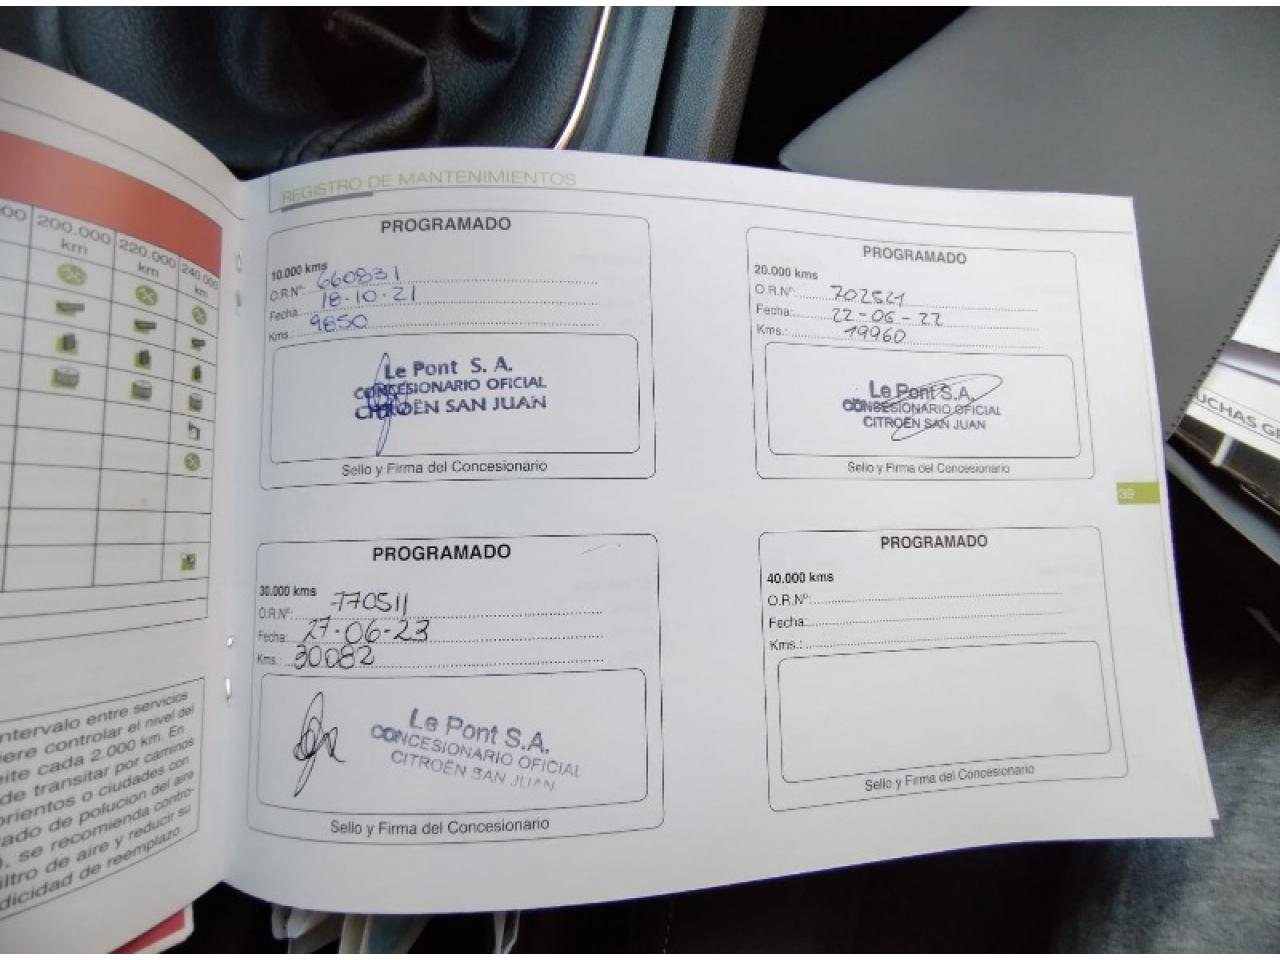 200.000
km
220.000
km
240.000
km
ntervalo entre servicios
iere controlar el nivel del
eite cada 2.000 km. En
de transitar por caminos
orientos o ciudades con
rado de polucion del aire
), se recomienda contro-
iltro de aire y reducir su
dicidad de reemplazo.
REGISTRO DE MANTENIMIENTOS
PROGRAMADO
10.000 kms
O.R.Nº: 660831
Fecha: 18-10-21
Kms.: 9850
Le Pont S. A.
CONCESIONARIO OFICIAL
CITROËN SAN JUAN
Sello y Firma del Concesionario
PROGRAMADO
20.000 kms
O.R.Nº: 702521
Fecha: 22-06-22
Kms.: 19960
Le Pont S.A.
CONCESIONARIO OFICIAL
CITROËN SAN JUAN
Sello y Firma del Concesionario
39
PROGRAMADO
30.000 kms
O.R.Nº: 770511
Fecha: 27-06-23
Kms.: 30082
Le Pont S.A.
CONCESIONARIO OFICIAL
CITROËN SAN JUAN
Sello y Firma del Concesionario
PROGRAMADO
40.000 kms
O.R.Nº:
Fecha:
Kms.:
Sello y Firma del Concesionario
UCHAS GR